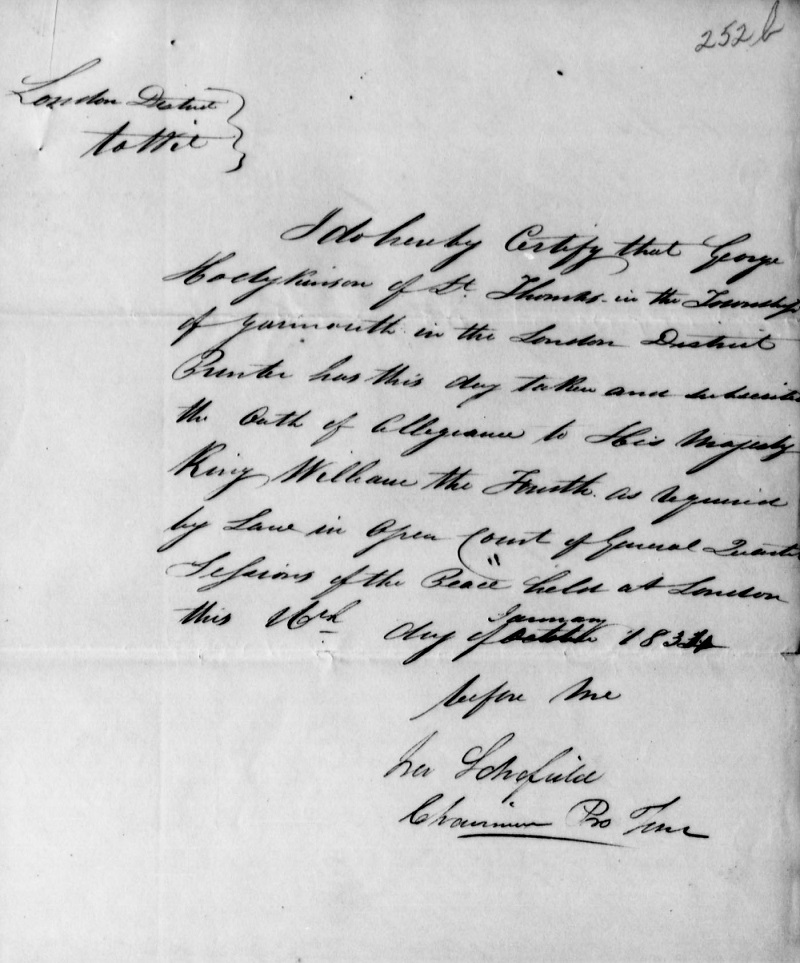 252 b
London District }
to Wit }
I do hereby Certify that George
Hodgkinson of St. Thomas in the Township
of Yarmouth in the London District
Printer has this day taken and subscribed
the Oath of Allegiance to His Majesty
King William the Fourth as required
by Law in Open Court of General Quarter
Sessions of the Peace held at London
this day of January 1834
before me
Schofield
Chairman Pro Tem